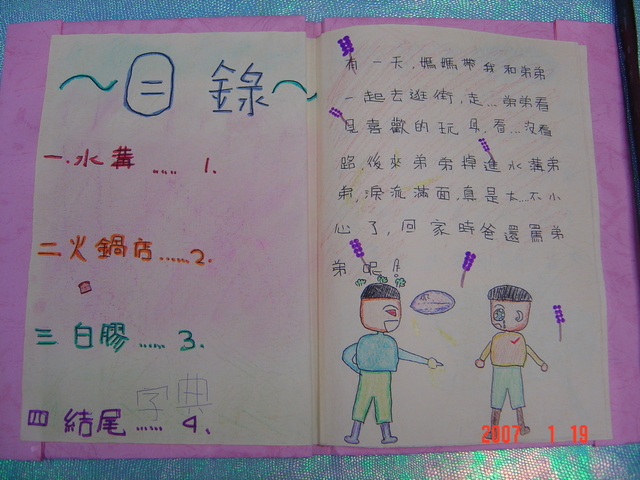 ~目錄~
一.水溝..... 1.
二火鍋店......2.
三白膠...... 3.
字典
四結尾...... 4.
有一天,媽媽帶我和弟弟
一起去逛街,走...弟弟看
見喜歡的玩具,看...沒看
路,後來弟弟掉進水溝弟
弟,淚流滿面,真是太...不小
心了,回家時爸還罵弟
弟呢!
2007 1 19